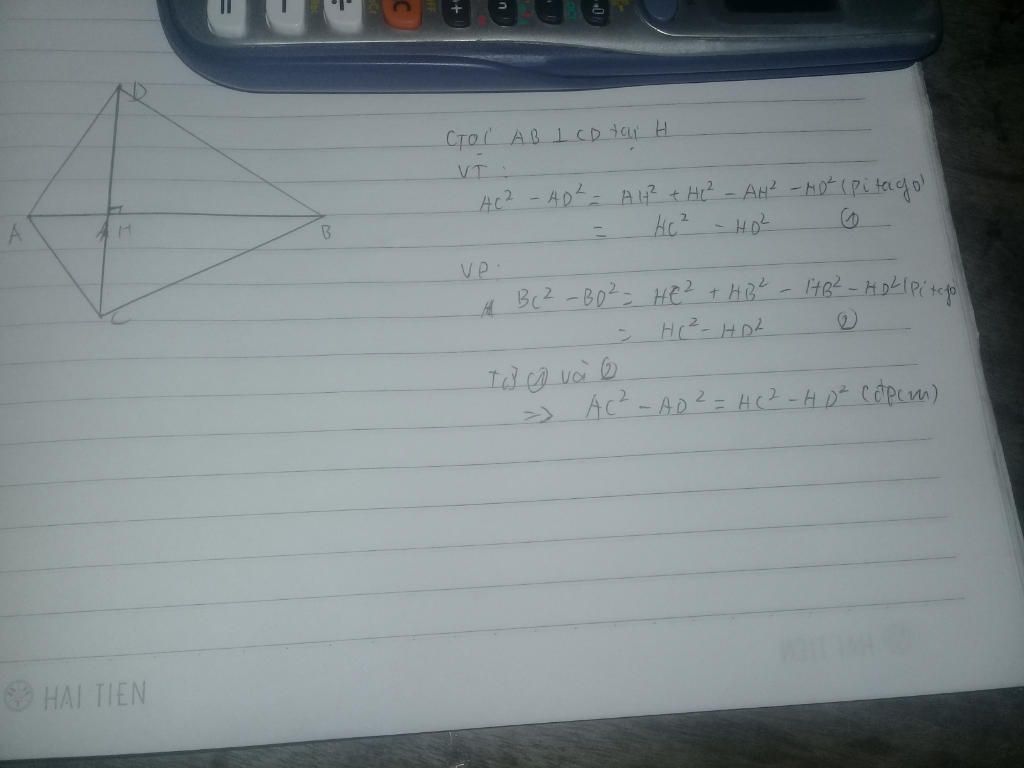 D
A
H
B
C
Gọi AB ⊥ CD tại H
VT:
AC² - AD² = AH² + HC² - AH² - HD² (Pitago)
= HC² - HD² ①
VP:
BC² - BD² = HC² + HB² - HB² - HD² (Pitago
= HC² - HD² ②
Từ ① và ②
=> AC² - AD² = HC² - HD² (đpcm)
HAI TIEN
HAI TIEN